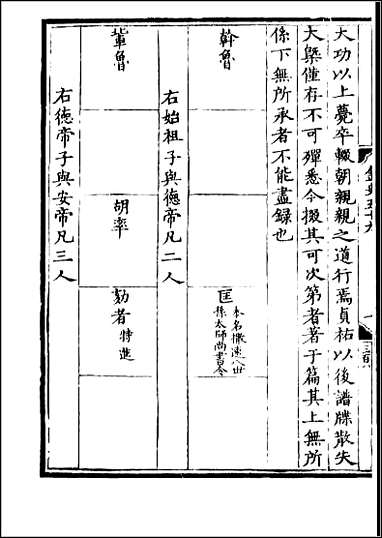 金史五十九
大功以上薨卒輟朝親親之道行焉貞祐以後譜牒散失
大槩僅存不可殫悉今掇其可次第者著于篇其上無所
係下無所承者不能盡録也
斡魯
匡 本名撒速八世
孫太師尚書令
右始祖子與德帝凡二人
輩魯
胡率
劾者 特進
右德帝子與安帝凡三人